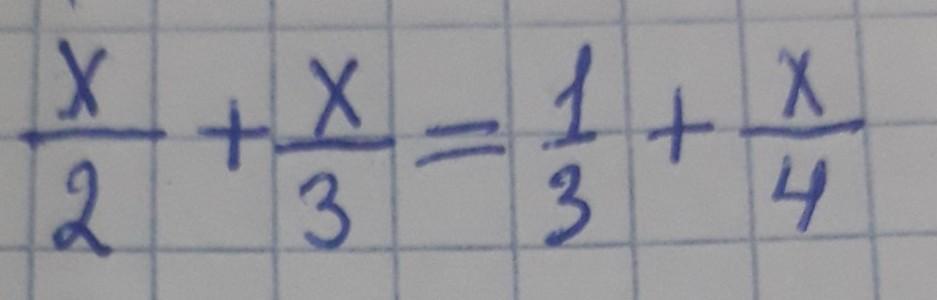 x/2 + x/3 = 1/3 + x/4